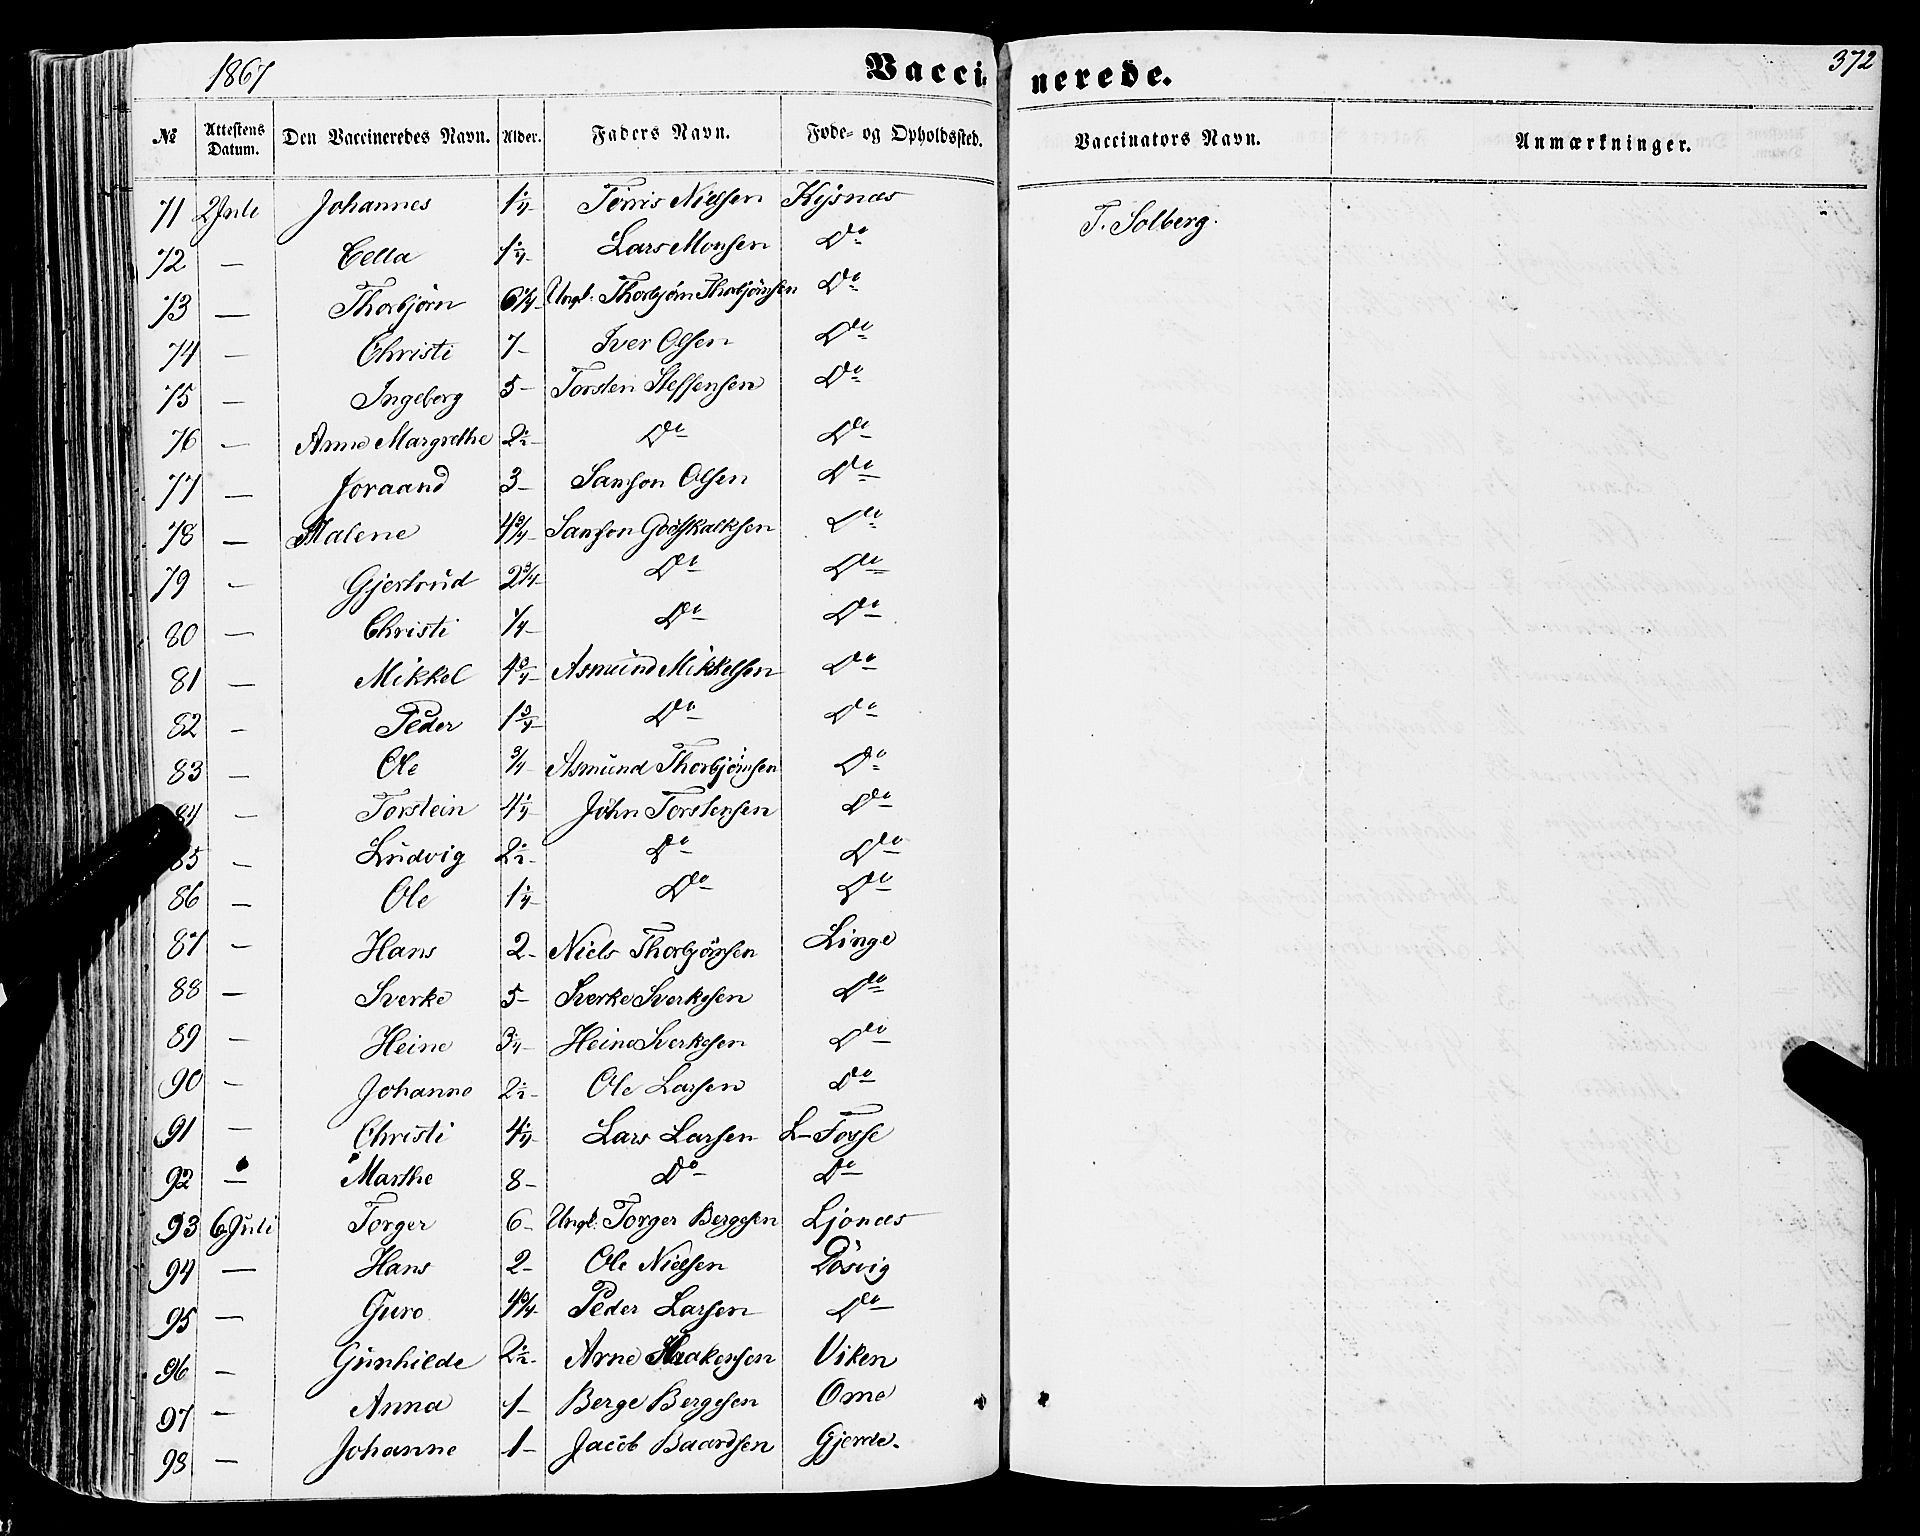 1867 Vaccinerede. 372
№ Attestens Datum. Den Vaccineredes Navn. Alder. Faders Navn. Føde- og Opholdssted. Vaccinators Navn. Anmærkninger.
71 2 Juli Johannes 1¼ Tørris Nielsen Kysnæs T. Solberg.
72 — Cella 1¼ Lars Monsen Do
73 — Thorbjørn 6¼ Ungk: Thorbjørn Thorbjørnsen Do
74 — Christi 7 Iver Olsen Do
75 — Ingeborg 5 Torsten Steffensen Do
76 — Anne Margrethe 2½ Do Do
77 — Joraand 3 Samson Olsen Do
78 — Malene 4¾ Samson Godskalksen Do
79 — Gjertrud 2¾ Do Do
80 — Christi ¼ Do Do
81 — Mikkel 4¾ Asmund Mikkelsen Do
82 — Peder 1¾ Do Do
83 — Ole ¾ Asmund Thorbjørnsen Do
84 — Torstein 4¼ John Torstensen Do
85 — Ludvig 2½ Do Do
86 — Ole 1¼ Do Do
87 — Hans 2 Niels Thorbjørnsen Linge
88 — Sverke 5 Sverke Sverkesen Do
89 — Heine 3¼ Heine Sverkesen Do
90 — Johanne 2½ Ole Larsen Do
91 — Christi 4¼ Lars Larsen L-Fosse
92 — Marthe 8 Do Do
93 6 Juli Torger 6 Ungk: Torger Bergesen Ljonæs
94 — Hans 2 Ole Nielsen Døsvig
95 — Guro 4¾ Peder Larsen Do
96 — Gunhilde 2½ Arne Haakensen Viken
97 — Anna 1 Berge Bergesen Ome
98 — Johanne 1 Jacob Baardsen Gjerde.